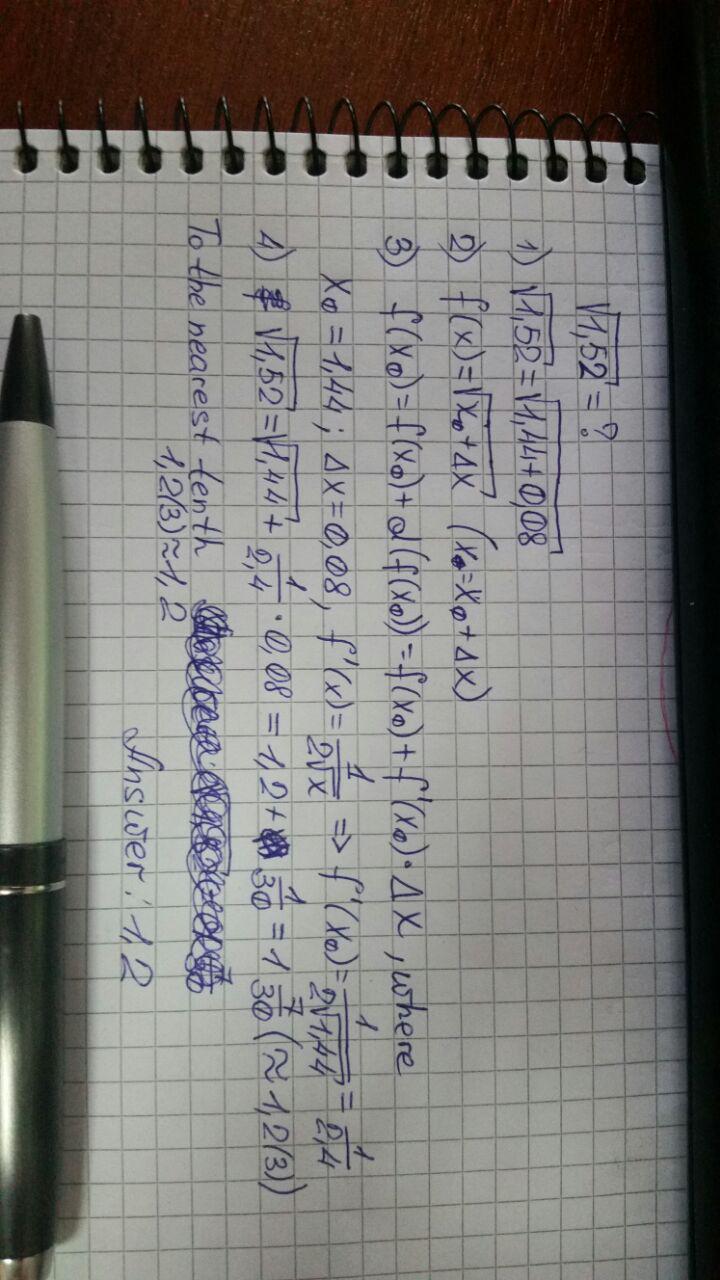 √1,52 = ?
1) √1,52 = √1,44 + 0,08
2) f(x) = √x₀ + Δx (x₀ = x₀ + Δx)
3) f(x₀) = f(x₀) + d(f(x₀)) = f(x₀) + f'(x₀) · Δx, where
x₀ = 1,44; Δx = 0,08, f'(x) = 1/2√x ⇒ f'(x₀) = 1/2√1,44 = 1/2,4
4) √1,52 = √1,44 + 1/2,4 · 0,08 = 1,2 + 1/30 = 1 7/30 (≈ 1,2(3))
To the nearest tenth
1,2(3) ≈ 1,2
Answer: 1,2